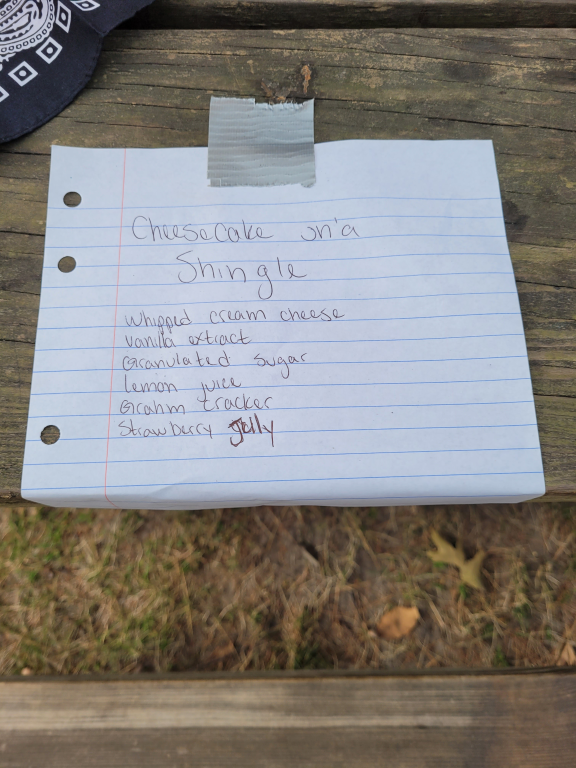 Cheesecake on'a
Shingle
whipped cream cheese
vanilla extract
Granulated sugar
lemon juice
Grahm tracker
Strawberry Jelly